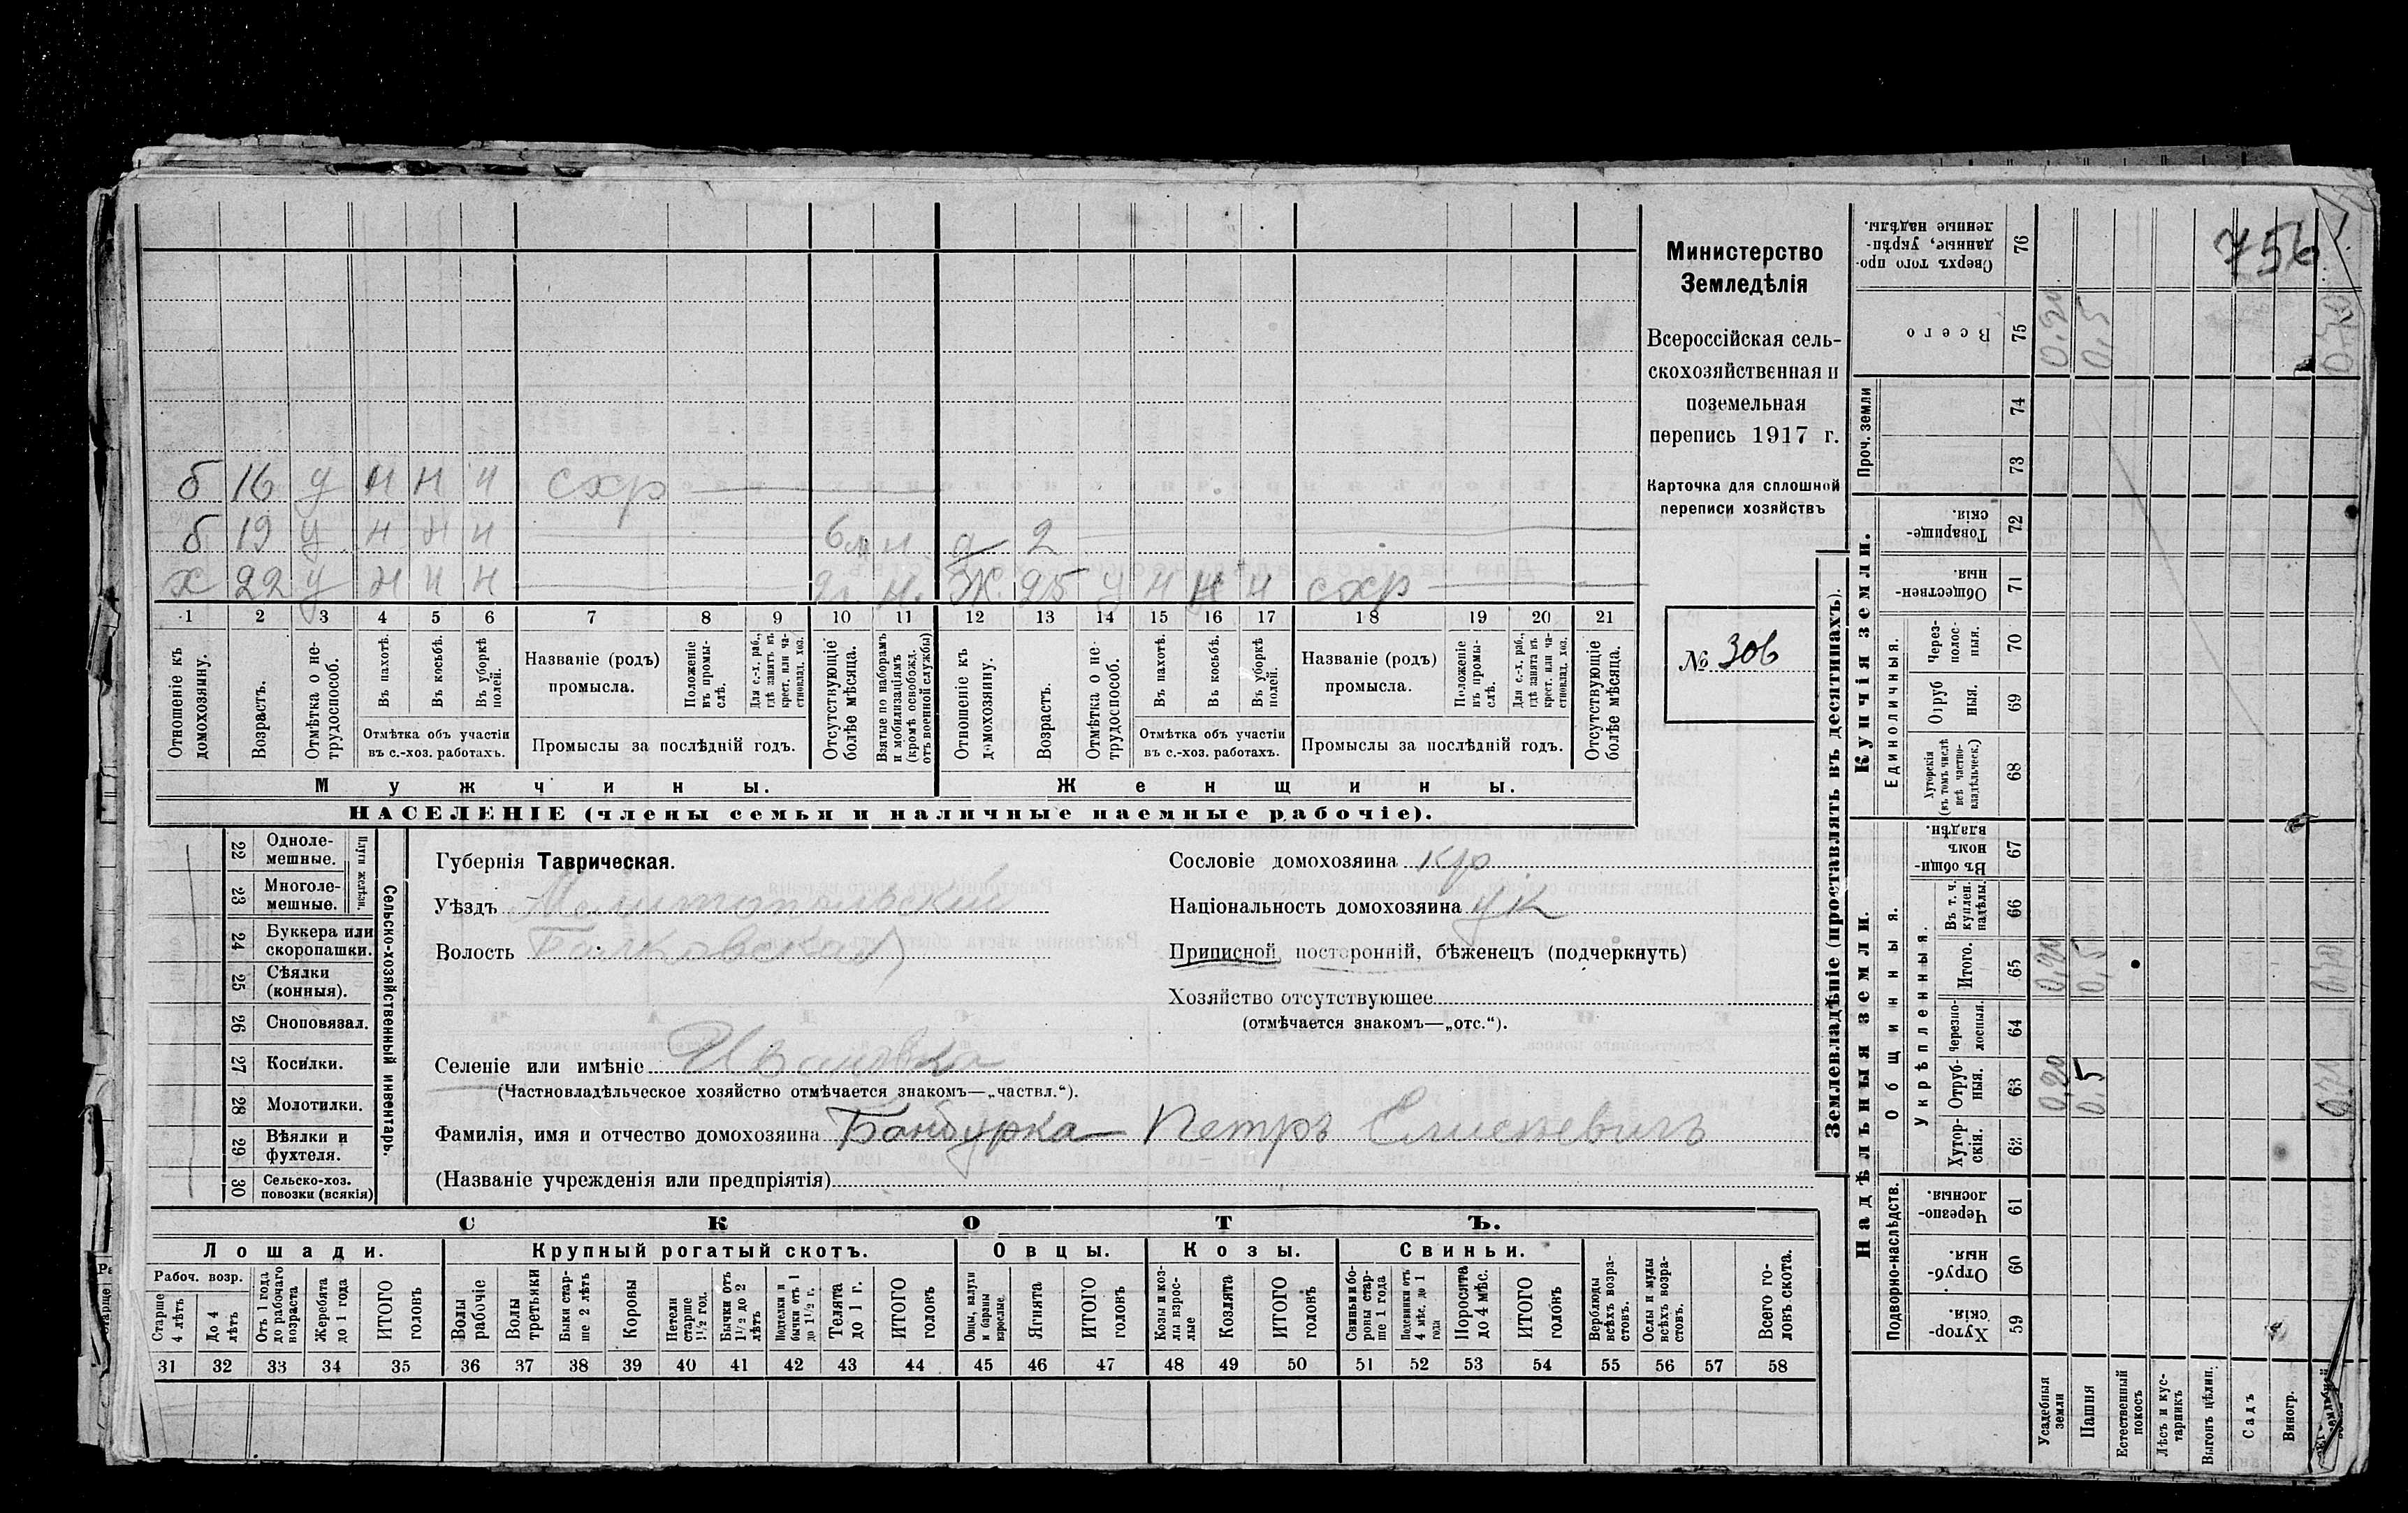 756
Министерство
Земледѣлія
Всероссійская сель-
скохозяйственная и
поземельная
перепись 1917 г.
Карточка для сплошной
переписи хозяйствъ
№ 306
б 16 у н н н схр
б 19 у н н н 6 м н д 2
х 22 у н н н 2 г. н. ж. 25 у н н н схр
1 2 3 4 5 6 7 8 9 10 11 12 13 14 15 16 17 18 19 20 21
Отношеніе къ домохозяину.
Возрастъ.
Отмѣтка о не-трудоспособ.
Въ пахотѣ.
Въ косьбѣ.
Въ уборкѣ полей.
Отмѣтка объ участіи
въ с.-хоз. работахъ.
Названіе (родъ)
промысла.
Положеніе въ промы-слѣ.
Для с.-х. раб., гдѣ занятъ въ крест. или ча-стновлад. хоз.
Промыслы за послѣдній годъ.
Отсутствующіе болѣе мѣсяца.
Взятые по наборамъ и мобилизаціямъ (кромѣ освобожд. отъ военной службы)
Отношеніе къ домохозяину.
Возрастъ.
Отмѣтка о не-трудоспособ.
Въ пахотѣ.
Въ косьбѣ.
Въ уборкѣ полей.
Отмѣтка объ участіи
въ с.-хоз. работахъ.
Названіе (родъ)
промысла.
Положеніе въ промы-слѣ.
Для с.-х. раб., гдѣ занята въ крест. или ча-стновлад. хоз.
Промыслы за послѣдній годъ.
Отсутствующіе болѣе мѣсяца.
Мужчины. Женщины.
НАСЕЛЕНІЕ (члены семьи и наличные наемные рабочіе).
Сельско-хозяйственный инвентарь.
Плуги желѣзн.
22 Одноле-мешные.
23 Многоле-мешные.
24 Буккера или скоропашки.
25 Сѣялки (конныя).
26 Сноповязал.
27 Косилки.
28 Молотилки.
29 Вѣялки и фухтеля.
30 Сельско-хоз. повозки (всякія)
Губернія Таврическая.
Уѣздъ Мелитопольскій
Волость Балковская
Сословіе домохозяина кр
Національность домохозяина ук
Приписной, посторонній, бѣженецъ (подчеркнуть)
Хозяйство отсутствующее
(отмѣчается знакомъ—„отс.“).
Селеніе или имѣніе Ивановка
(Частновладѣльческое хозяйство отмѣчается знакомъ—„частвл.“).
Фамилія, имя и отчество домохозяина Бандурка Петръ Елисеевичъ
(Названіе учрежденія или предпріятія)
СКОТЪ.
Лошади. Крупный рогатый скотъ. Овцы. Козы. Свиньи.
Рабоч. возр.
Старше 4 лѣтъ
До 4 лѣтъ
Отъ 1 года до рабочаго возраста
Жеребята до 1 года
ИТОГО головъ
Волы рабочіе
Волы третьяки
Быки стар-ше 2 лѣтъ
Коровы
Нетели старше 1½ год.
Бычки отъ 1½ до 2 лѣтъ
Подтелки и бычки отъ 1 до 1½ г.
Телята до 1 г.
ИТОГО головъ
Овцы, валухи и бараны взрослые.
Ягнята
ИТОГО головъ
Козы и коз-лы взрос-лые
Козлята
ИТОГО головъ
Свиньи и бо-ровы стар-ше 1 года
Подсвинки отъ 4 мѣс. до 1 года
Поросята до 4 мѣс.
ИТОГО головъ
Верблюды всѣхъ возра-стовъ.
Ослы и мулы всѣхъ возра-стовъ.
Всего го-ловъ скота.
31 32 33 34 35 36 37 38 39 40 41 42 43 44 45 46 47 48 49 50 51 52 53 54 55 56 57 58
Землевладѣніе (проставлять въ десятинахъ).
Купчія земли.
Надѣльныя земли.
Проч. земли
Единоличныя.
Общинныя.
Укрѣпленныя.
Подворно-наслѣдств.
76 Сверхъ того про-данные, укрѣп-ленные надѣлы.
75 Всего 0,20 0,5
74
73
72 Товарище-скія.
71 Обществен-ныя.
70 Через-полос-ныя.
69 Отруб ныя.
68 Хуторскія (въ томъ числѣ всѣ частно-владѣльческ.)
67 Въ общи-номъ владѣн.
66 Въ т. ч. куплен. надѣлы.
65 Итого. 0,20 0,5
64 Черезпо-лосныя.
63 Отруб-ныя. 0,20 0,5
62 Хутор-скія.
61 Черезпо-лосныя.
60 Отруб-ныя.
59 Хутор-скія.
Усадебныя земли
Пашня
Естественный покосъ
Лѣсъ и кус-тарникъ
Выгонъ цѣлин.
Садъ
Виногр.